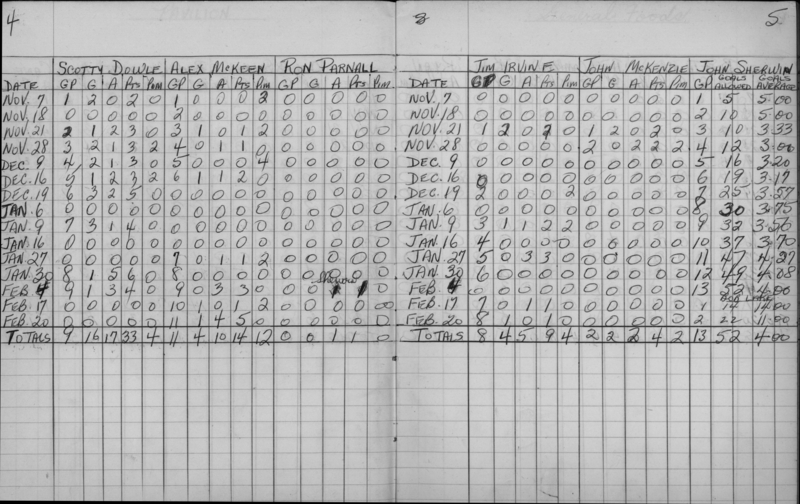 4 8 5
SCOTTY DOWLE ALEX MCKEEN RON PARNALL JIM IRVINE JOHN MCKENZIE JOHN SHERWIN
DATE GP G A Pts Pim GP G A Pts Pim GP G A Pts Pim DATE GP G A Pts Pim GP G A Pts Pim GP GOALS ALLOWED GOALS AVERAGE
NOV. 7 1 2 0 2 0 1 0 0 0 2 0 0 0 0 0 NOV. 7 0 0 0 0 0 0 0 0 0 0 1 5 5.00
NOV. 18 0 0 0 0 0 2 0 0 0 0 0 0 0 0 0 NOV. 18 0 0 0 0 0 0 0 0 0 0 2 10 5.00
NOV. 21 2 1 2 3 0 3 1 0 1 2 0 0 0 0 0 NOV. 21 1 2 0 2 0 1 2 0 2 0 3 10 3.33
NOV. 28 3 2 1 3 2 4 0 1 1 0 0 0 0 0 0 NOV. 28 0 0 0 0 0 2 0 2 2 2 4 12 3.00
DEC. 9 4 2 1 3 0 5 0 0 0 4 0 0 0 0 0 DEC. 9 0 0 0 0 0 0 0 0 0 0 5 16 3.20
DEC. 16 5 1 2 3 2 6 1 1 2 0 0 0 0 0 0 DEC. 16 0 0 0 0 0 0 0 0 0 6 19 3.17
DEC. 19 6 3 2 5 0 0 0 0 0 0 0 0 0 0 0 DEC. 19 2 0 0 0 2 0 0 0 0 0 7 25 3.57
JAN. 6 0 0 0 0 0 0 0 0 0 0 0 0 0 0 0 JAN. 6 0 0 0 0 0 0 0 0 0 0 8 30 3.75
JAN. 9 7 3 1 4 0 0 0 0 0 0 0 0 0 0 0 JAN. 9 3 1 1 2 2 0 0 0 0 0 9 32 3.56
JAN. 16 0 0 0 0 0 0 0 0 0 0 0 0 0 0 0 JAN. 16 4 0 0 0 0 0 0 0 0 0 10 37 3.70
JAN. 27 0 0 0 0 0 7 0 1 1 2 0 0 0 0 0 JAN. 27 5 0 3 3 0 0 0 0 0 0 11 47 4.27
JAN. 30 8 1 5 6 0 8 0 0 0 0 0 0 0 0 JAN. 30 6 0 0 0 0 0 0 0 0 0 12 49 4.08
FEB. 4 9 1 3 4 0 9 0 3 3 0 0 0 1 1 0 FEB. 4 0 0 0 0 0 0 0 0 0 0 13 52 4.00
FEB. 17 0 0 0 0 0 10 1 0 1 2 0 0 0 0 0 FEB. 17 7 0 1 1 0 0 0 0 0 0 1
FEB. 20 0 0 0 0 0 11 1 4 5 0 0 0 0 0 0 FEB. 20 8 1 0 1 0 0 0 0 0 0 2 22 11.00
TOTALS 9 16 17 33 4 11 4 10 14 12 0 0 1 1 0 TOTALS 8 4 5 9 4 2 2 2 4 2 13 52 4.00